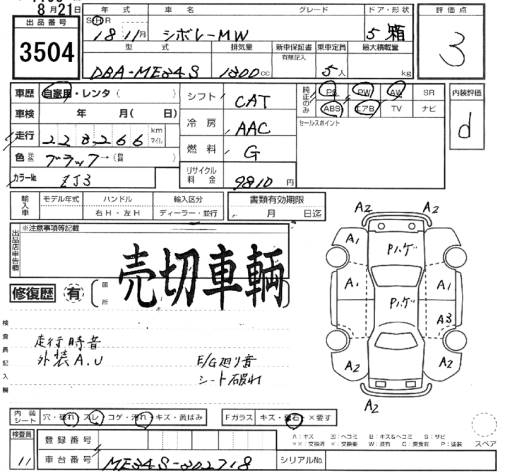 8月21日
出品番号
3504
年式 車名 グレード ドア・形状 評価点
S H R
18年11月 シボレーMW 5 箱
3
型式 排気量 新車保証書 乗車定員 最大積載量
有無記入
DBA-ME34S 1300cc 5人 kg
車歴 自家用・レンタ( )
車検 年 月( 日)
走行 228266 km マイル
色 ブラック→(色替 )
カラーNo. ZJ3
シフト CAT
冷房 AAC
燃料 G
リサイクル料金 9810円
純正のみ PS PW AW SR
ABS エアB TV ナビ
セールスポイント
内装評価
d
輸入車 モデル年式 ハンドル 輸入区分
右H・左H ディーラー・並行
書類有効期限
月 日迄
出品店申告欄
※注意事項等記載
売切車輌
修復歴 有 箇所
検査員記入欄
走行時音
外装A.U
E/G廻り音
シート破れ
A2 A2
A1 A1
A1 A1
A2 A3 A2
A2
P.ルーゲ
P.ルーゲ
内装シート 穴・破れ・スレ・コゲ・汚れ・キズ・黄ばみ
Fガラス キズ・飛石・×要す
スペア
検査員
11
登録番号
車台番号 ME34S-202718
シリアルNo.